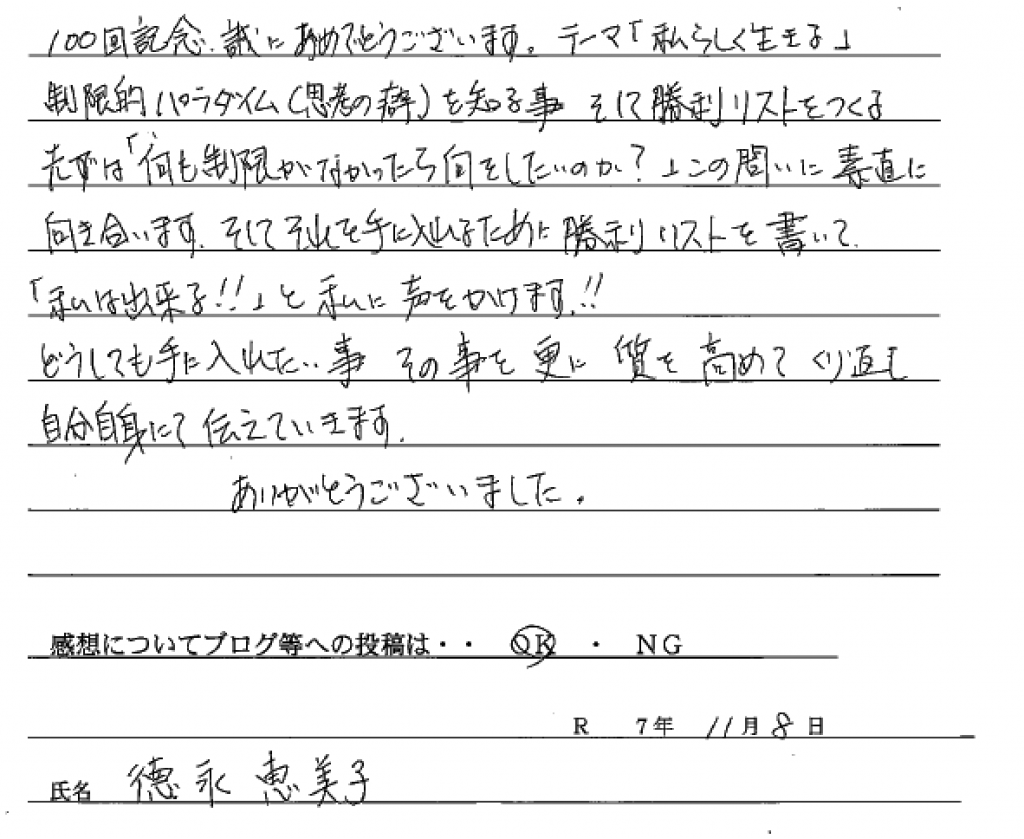 100回記念、誠におめでとうございます。テーマ「私らしく生きる」
制限的パラダイム(思考の癖)を知る事 そして勝利リストをつくる
先ずは「何も制限がなかったら何をしたいのか?」この問いに素直に
向き合います。そしてそれを手に入れるために勝利リストを書いて、
「私は出来る!!」と私に声をかけます!!
どうしても手に入れたい事 その事を更に質を高めてくり返し
自分自身にて伝えていきます。
ありがとうございました。
感想についてブログ等への投稿は・・ OK ・ NG
R 7年 11月 8日
氏名 德永 恵美子